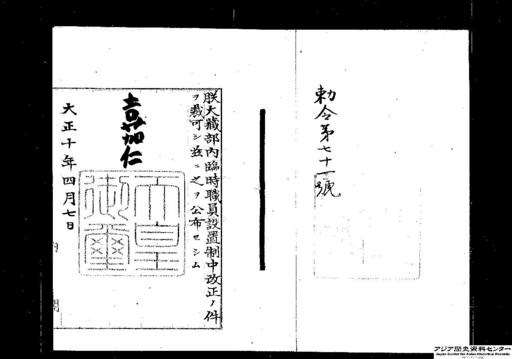 勅令第七十一號
朕大藏部內臨時職員設置制中改正ノ件
ヲ裁可シ茲ニ之ヲ公布セシム
嘉仁
天皇御璽
大正十年四月七日
アジア歴史資料センター
Japan Center for Asian Historical Records